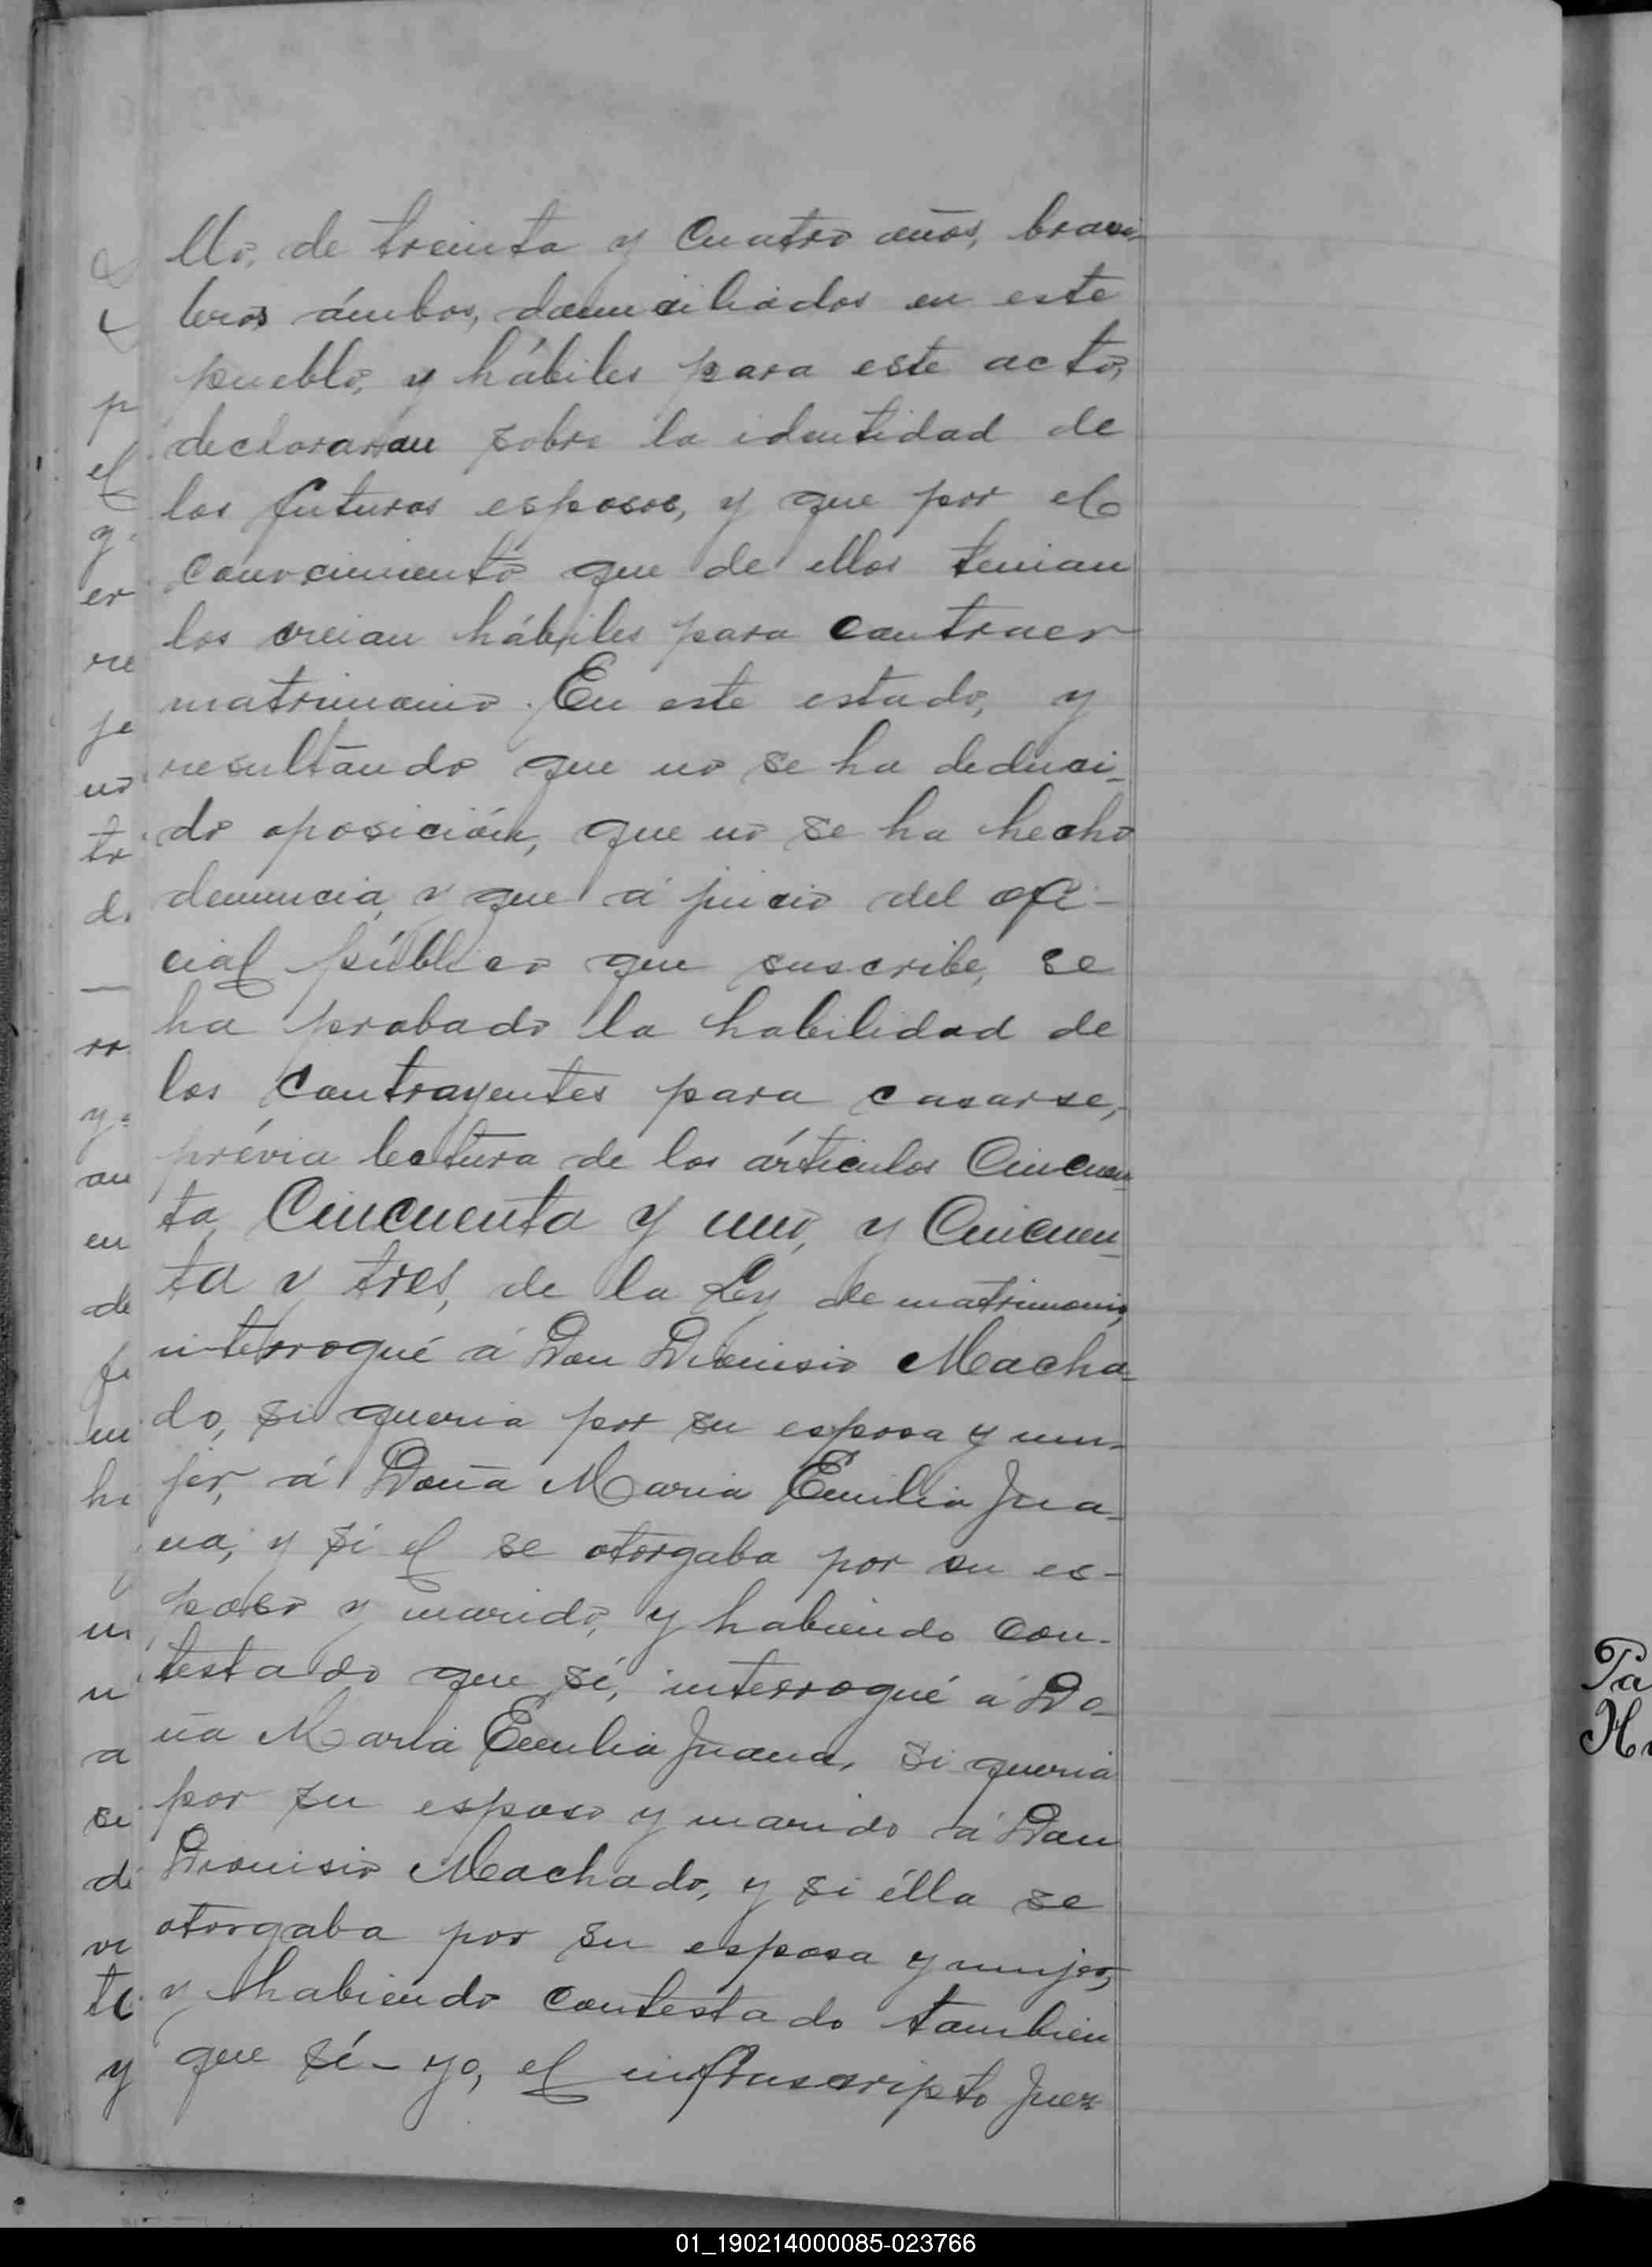 llo, de treinta y cuatro años, brasi-
leros ámbos, domiciliados en este
pueblo, y hábiles para este acto,
declararon sobre la identidad de
los futuros esposos, y que por el
conocimiento que de ellos tenian
los creian hábiles para contraer
matrimonio. En este estado, y
resultando que no se ha deduci-
do oposición, que no se ha hecho
denuncia, y que á juicio del ofi-
cial público que suscribe, se
ha probado la habilidad de
los contrayentes para casarse,
prévia lectura de los árticulos Cincuen-
ta, Cincuenta y uno, y Cincuen-
ta y tres, de la Ley de matrimonio,
interrogué á Don Dionisio Macha-
do, si queria por su esposa y mu-
jer, á Doña Maria Emilia Jua-
na, y si el se otorgaba por su es-
poso y marido, y habiendo con-
testado que sí, interrogué á Do-
ña Maria Emilia Juana, si queria
por su esposo y marido á Don
Dionisio Machado, y si élla se
otorgaba por su esposa y mujer,
y habiendo contestado tambien
que sí - yo, el infrascripto Juez
Pa
01_190214000085-023766